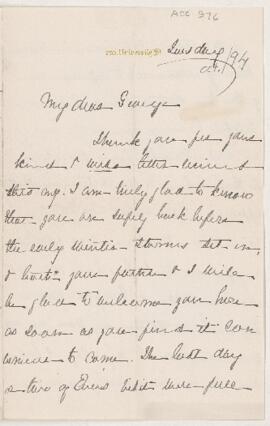 ACC 376
Tuesday /94
My dear George
Thank you for your
kind & letter
this . I am truly glad to know
that you are safely back before
the early winter storms set in,
& both your father & I will
be glad to welcome you here
as soon as you find it con
venient to come. The last day
or two of visit were full